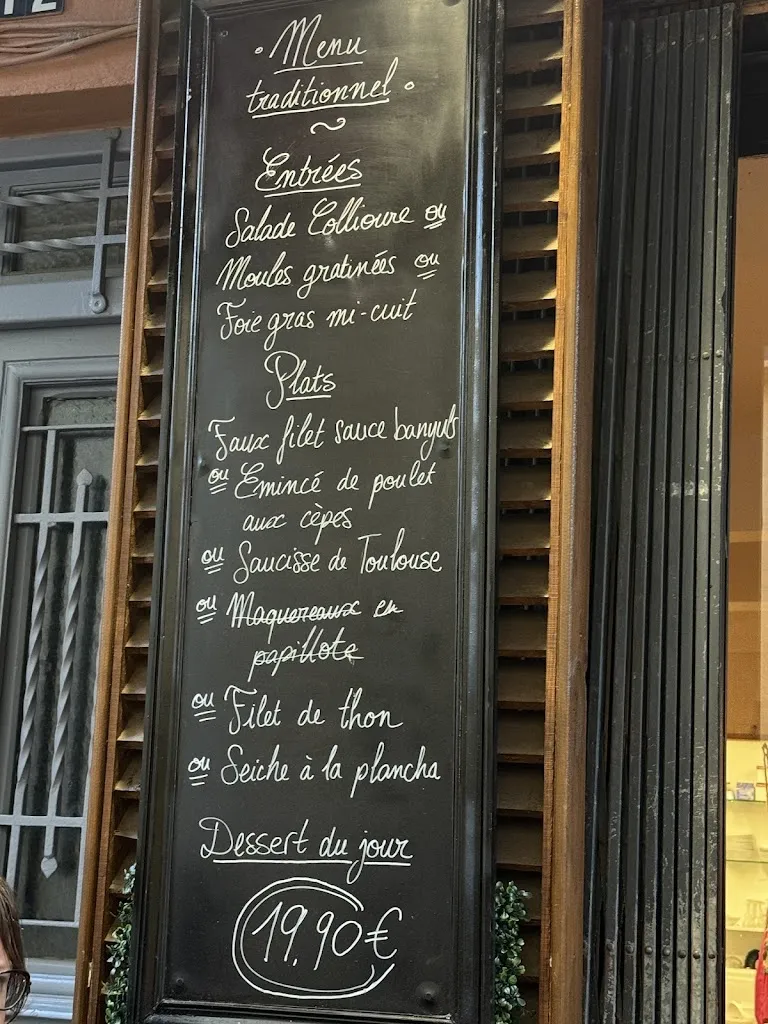 • Menu
traditionnel •
~
Entrées
Salade Collioure ou
Moules gratinées ou
Foie gras mi-cuit
Plats
Faux filet sauce banyuls
ou Emincé de poulet
aux cèpes
ou Saucisse de Toulouse
ou Maquereaux en
papillote
ou Filet de thon
ou Seiche à la plancha
Dessert du jour
19,90€